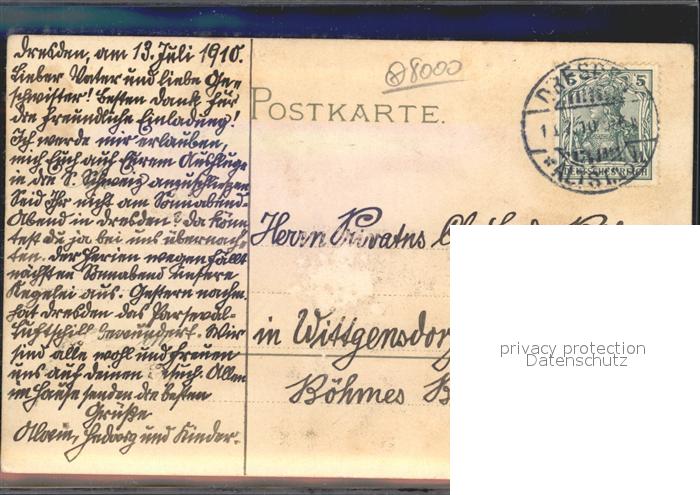 Dresden, am 13. Juli 1910.
Lieber Vater und liebe Ge-
schwister! Besten Dank für
die freundliche Einladung!
Ich werde mir erlauben,
mich Euch auf Eurem Ausfluge
in die S. Schweiz anzuschließen
Seid Ihr nicht am Sonnabend-
Abend in Dresden? Da könn
test du ja bei uns übernach-
ten. Der Ferien wegen fällt
nächsten Sonnabend unsere
Kegelei aus. Gestern nachm.
hat Dresden das Parseval-
Luftschiff bewundert. Wir
sind alle wohl und freuen
uns auf deinen Besuch. Allen
im Hause senden die besten
Grüße
Alwin, Hedwig und Kinder.
⊗8000
POSTKARTE.
5
DEUTSCHES REICH
DRESD
ALTST.
Herrn Privatus
in Wittgensdor
Böhmes B
privacy protection
Datenschutz